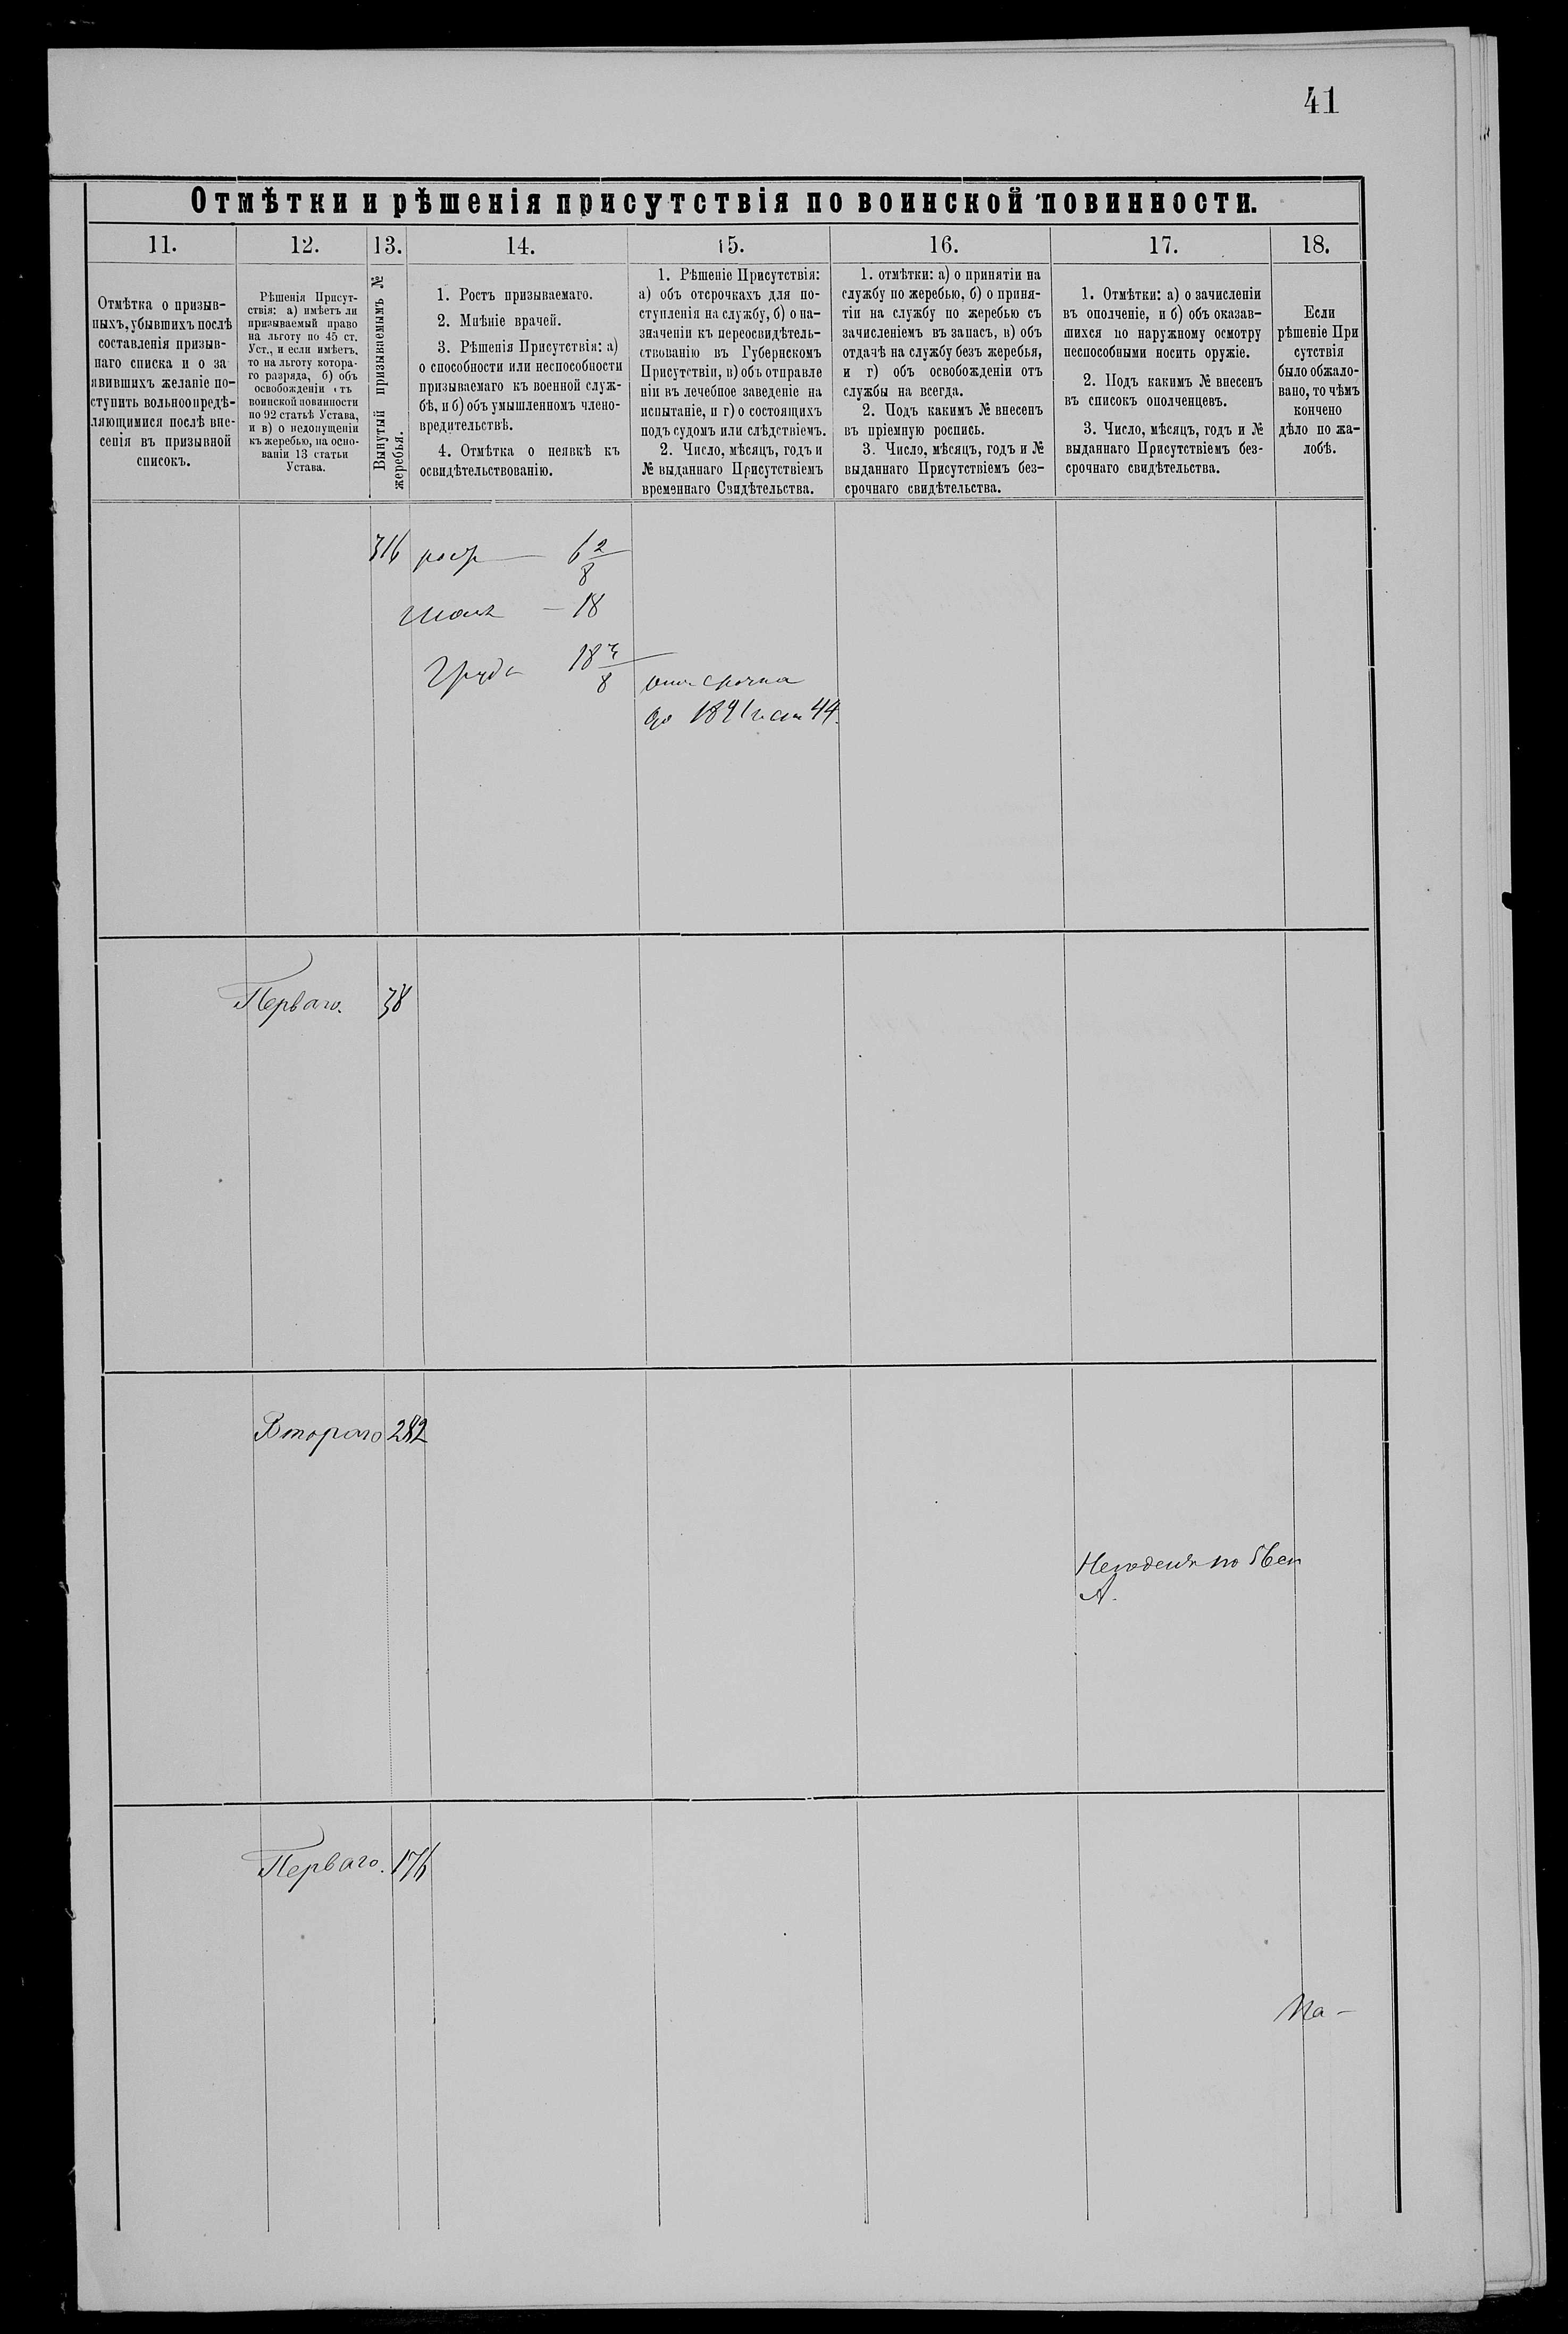 41
Отмѣтки и рѣшенія присутствія по воинской повинности.
11.
12.
13.
14.
15.
16.
17.
18.
Отмѣтка о призыв-
ныхъ, убывшихъ послѣ
составленія призыв-
наго списка и о за
явившихъ желаніе по-
ступить вольноопредѣ-
ляющимися послѣ вне-
сенія въ призывной
списокъ.
Рѣшенія Присут-
ствія: а) имѣетъ ли
призываемый право
на льготу по 45 ст.
Уст., и если имѣетъ,
то на льготу котора-
го разряда, б) объ
освобожденіи отъ
воинской повинности
по 92 статьѣ Устава,
и в) о недопущеніи
къ жеребью, на осно-
ваніи 13 статьи
Устава.
Вынутый призываемымъ №
жеребья.
1. Ростъ призываемаго.
2. Мнѣніе врачей.
3. Рѣшенія Присутствія: а)
о способности или неспособности
призываемаго къ военной служ-
бѣ, и б) объ умышленномъ члено-
вредительствѣ.
4. Отмѣтка о неявкѣ къ
освидѣтельствованію.
1. Рѣшеніе Присутствія:
а) объ отсрочкахъ для по-
ступленія на службу, б) о на-
значеніи къ переосвидѣтель-
ствованію въ Губернскомъ
Присутствіи, в) объ отправле
ніи въ лечебное заведеніе на
испытаніе, и г) о состоящихъ
подъ судомъ или слѣдствіемъ.
2. Число, мѣсяцъ, годъ и
№ выданнаго Присутствіемъ
временнаго Свидѣтельства.
1. отмѣтки: а) о принятіи на
службу по жеребью, б) о приня-
тіи на службу по жеребью съ
зачисленіемъ въ запасъ, в) объ
отдачѣ на службу безъ жеребья,
и г) объ освобожденіи отъ
службы на всегда.
2. Подъ какимъ № внесенъ
въ пріемную роспись.
3. Число, мѣсяцъ, годъ и №
выданнаго Присутствіемъ без-
срочнаго свидѣтельства.
1. Отмѣтки: а) о зачисленіи
въ ополченіе, и б) объ оказав-
шихся по наружному осмотру
неспособными носить оружіе.
2. Подъ какимъ № внесенъ
въ списокъ ополченцевъ.
3. Число, мѣсяцъ, годъ и №
выданнаго Присутствіемъ без-
срочнаго свидѣтельства.
Если
рѣшеніе При
сутствія
было обжало-
вано, то чѣмъ
кончено
дѣло по жа-
лобѣ.
316 рост — 6 2/8
— 18
Грудь 18 3/8
отсрочка
до 1891 г ст 44.
Перваго. 38
Второго 282
Негоденъ по 56 ст
А.
Перваго. 176
На —